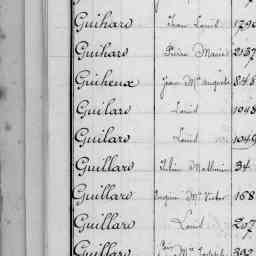 Guihard Jean Louis 1790
Guihard Pierre Marie 2137
Guiheux Jean Me Auguste 845
Guilard Louis 1048
Guilard Louis 1049
Guillard Julien Mathurin 34
Guillard Eugène Me Victor 168
Guillard Louis 207
Guillard Me Joseph 392